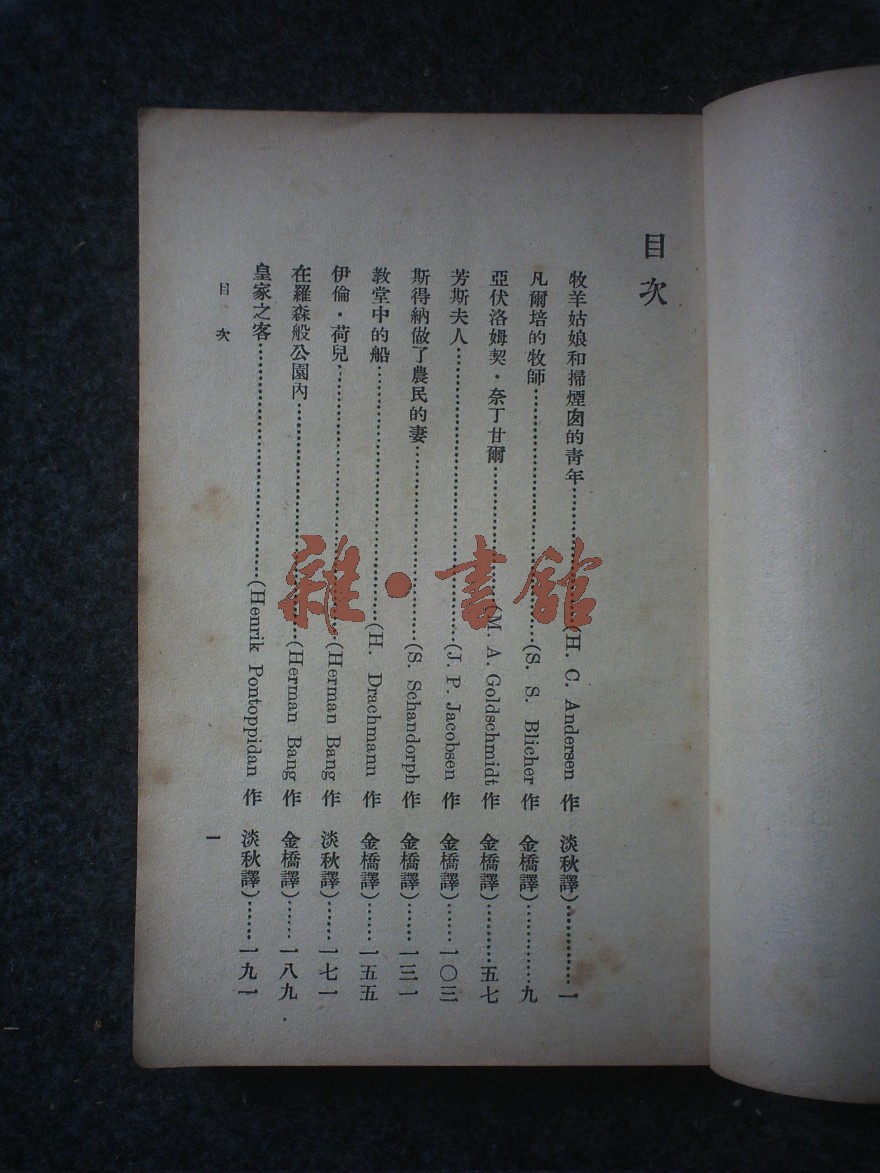 目次
牧羊姑娘和掃煙囱的青年……………(H. C. Andersen 作 淡秋譯)…………一
凡爾培的牧師……………(S. S. Blicher 作 金橋譯)…………九
亞伏洛姆契·奈丁甘爾……………(M. A. Goldschmidt 作 金橋譯)…………五七
芳斯夫人……………(J. P. Jacobsen 作 金橋譯)……一〇三
斯得納做了農民的妻……………(S. Schandorph 作 金橋譯)……一三一
教堂中的船……………(H. Drachmann 作 金橋譯)……一五五
伊倫·荷兒……………(Herman Bang 作 淡秋譯)……一七一
在羅森般公園內……………(Herman Bang 作 金橋譯)……一八九
皇家之客……………(Henrik Pontoppidan 作 淡秋譯)……一九一
目次
一
雜·書館